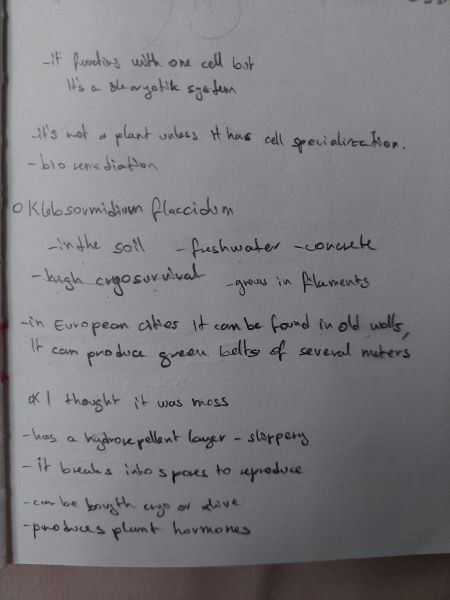 -it functions with one cell but
It's a eucaryotik system
-it's not a plant unless it has cell specialization.
-bio remediation
O Klebsormidium flaccidum
-in the soil -freshwater -concrete
-high cryosurvival -grows in filaments
-in European cities it can be found in old walls,
it can produce green belts of several meters
I thought it was moss
-has a hydrorepellent layer -slippery
-it breaks into spores to reproduce
-can be bougth cryo or alive
-produces plant hormones